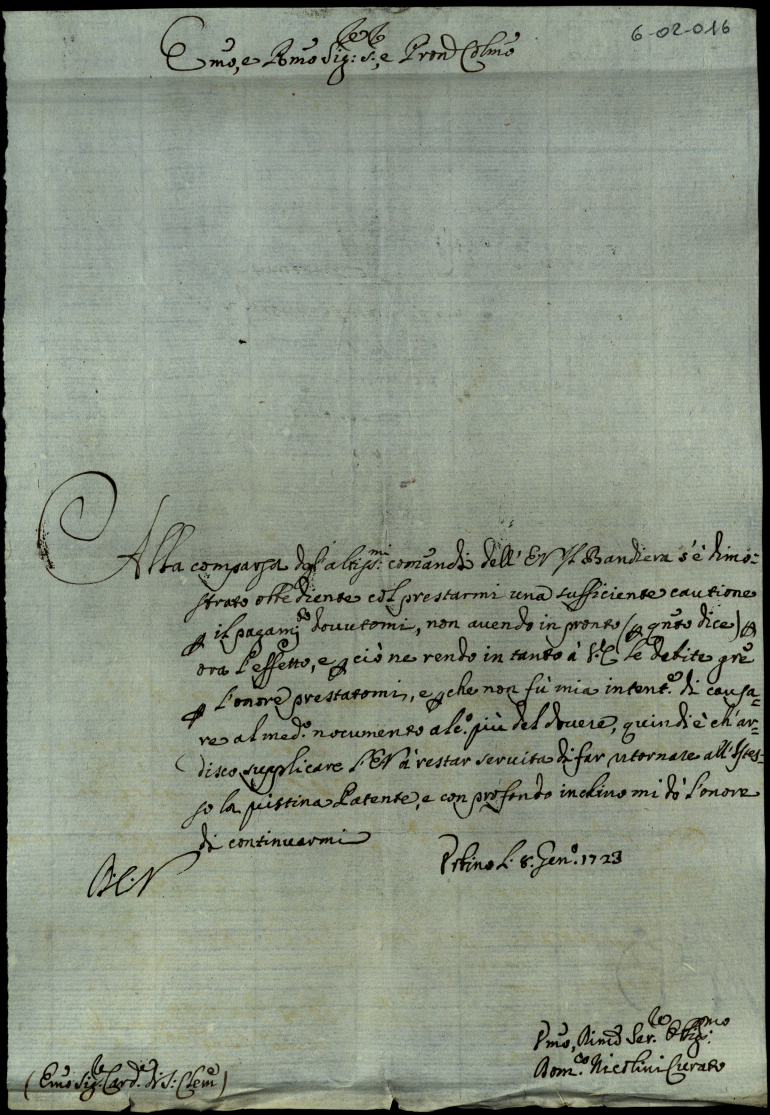 6-02-016
Emo, e Rmo Sig.r s.e, e Pron Colmo
Alla comparsa degl'altiss.mi comandi dell' EV il Bandiera s'è dimo:
strato obbediente col prestarmi una sufficiente cautione
p il pagam.to dovutomi, non avendo in pronto (p quto dice) p
ora l'effetto, e p ciò ne rendo in tanto à V.E le debite gre
p l'onore prestatomi, e pche non fù mia intent.e di causa=
re al med.o nocumento alc.o più del dovere, quindi è ch'ar=
disco supplicare l'EV à restar servita di far ritornare all'istes=
so la pristina Patente, e con profondo inchino mi dò l'onore
di continuarmi
Urbino L. 8. Gen.o 1723
D.E.V
Umo, Ser.re Oblig.mo
Dom.co Nicolini Curato
(Emo Sig.r Card.e di S: Clem)